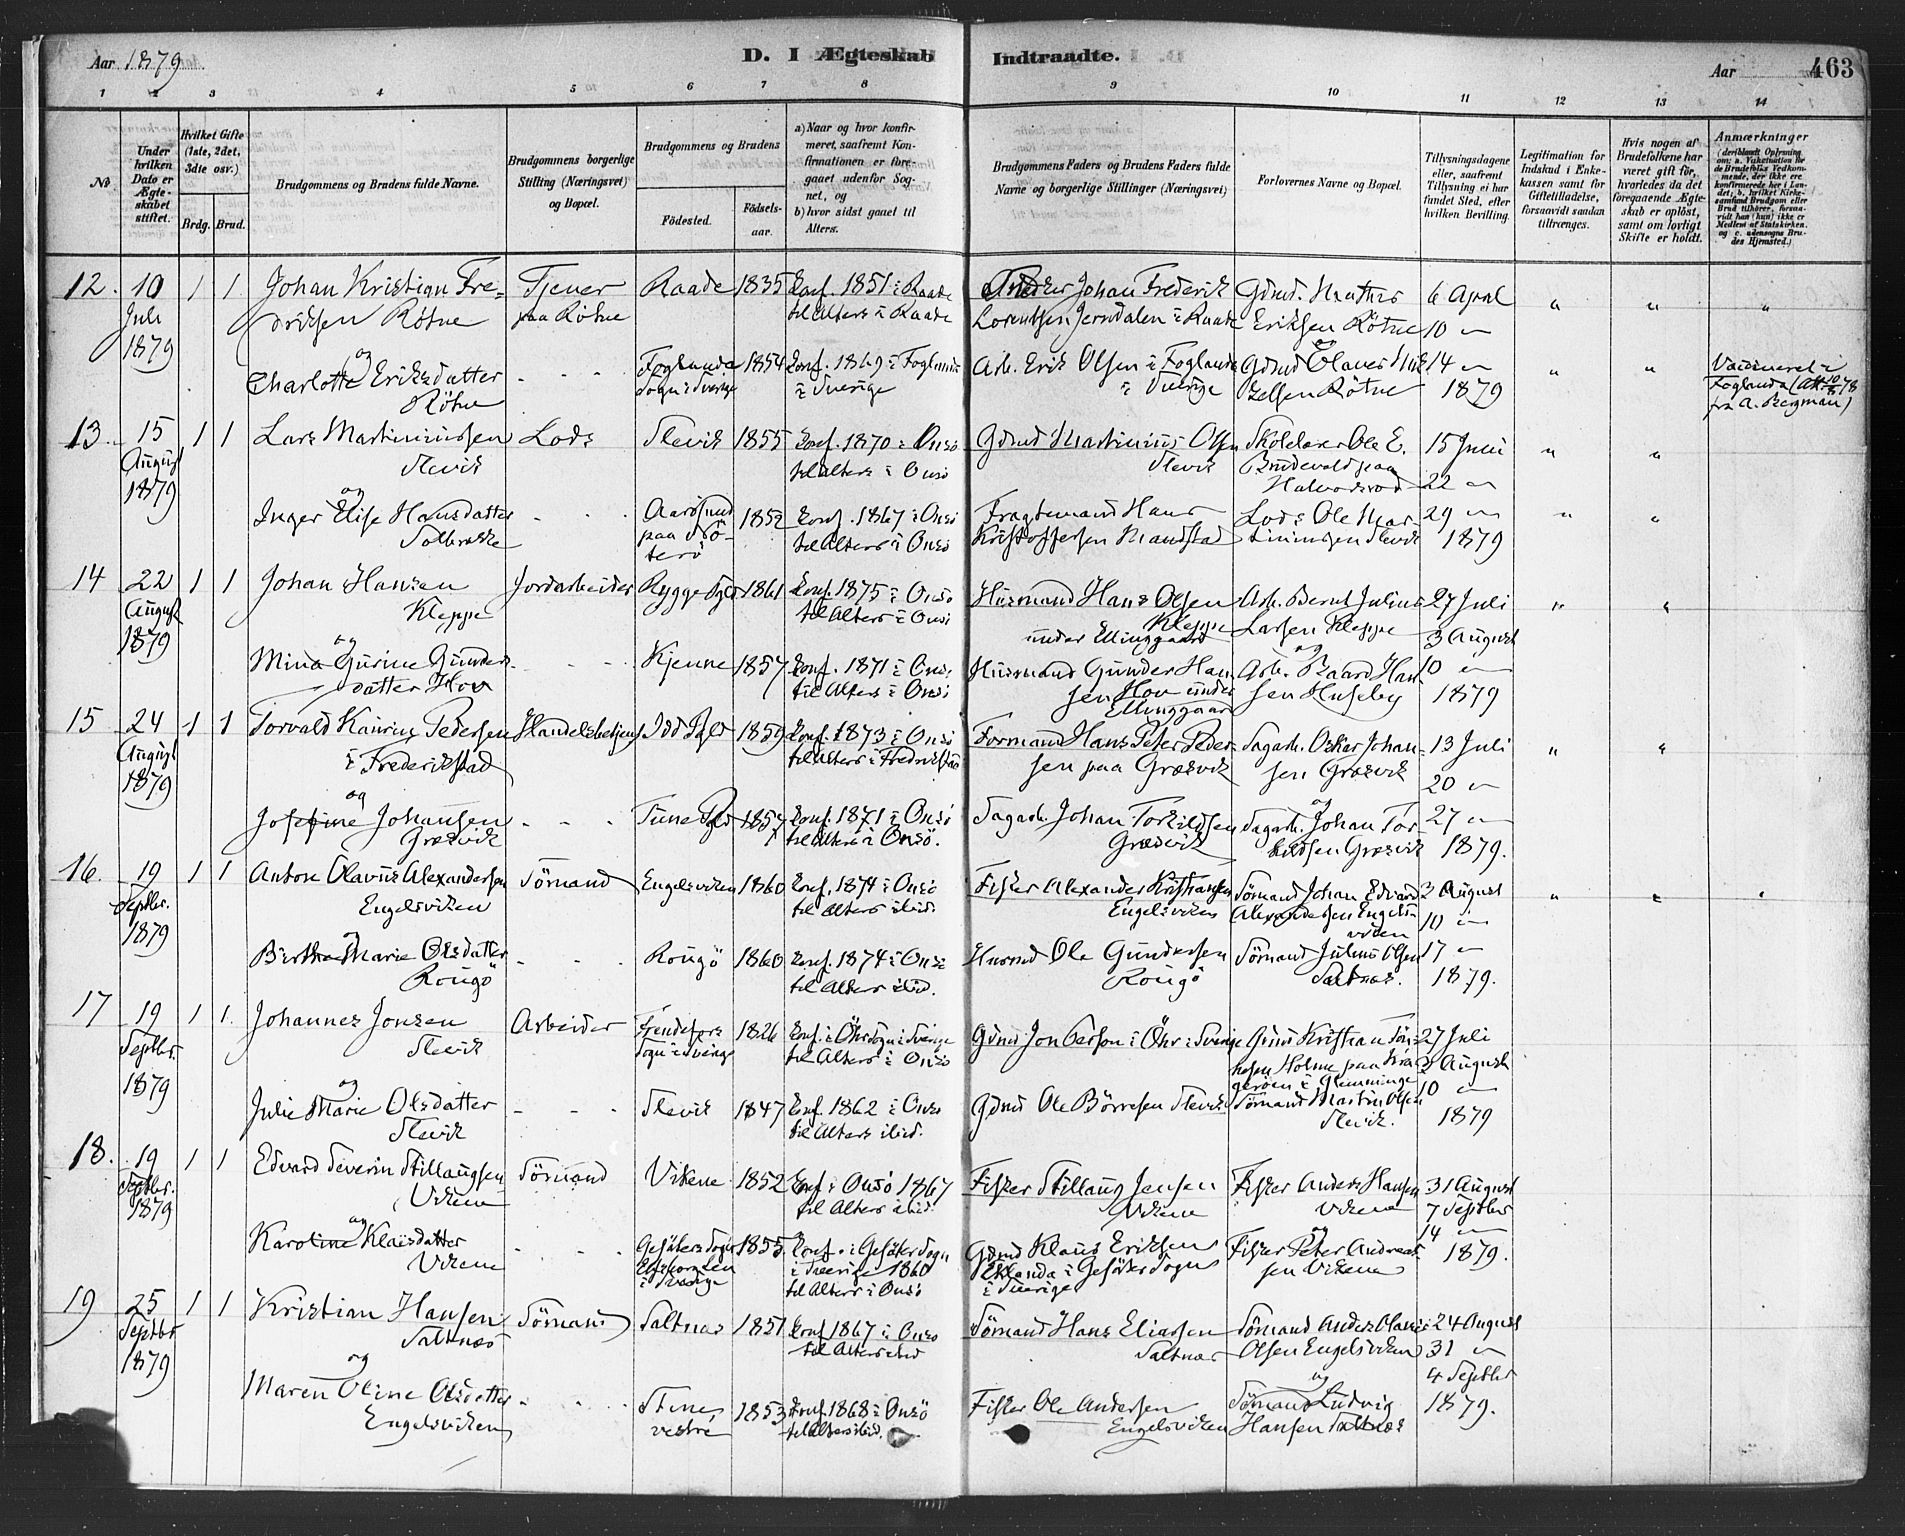 Aar 1879
D. I Ægteskab Indtraadte.
Aar
463
1 2 3 4 5 6 7 8 9 10 11 12 13 14
No
Under hvilken Dato er Ægteskabet stiftet.
Hvilket Gifte (1ste, 2det, 3die osv.)
Brdg. Brud.
Brudgommens og Brudens fulde Navne.
Brudgommens borgerlige Stilling (Næringsvei) og Bopæl.
Brudgommens og Brudens
Födested.
Födselsaar.
a) Naar og hvor konfirmeret, saafremt Konfirmationen er foregaaet udenfor Sognet, og
b) hvor sidst gaaet til Alters.
Brudgommens Faders og Brudens Faders fulde Navne og borgerlige Stillinger (Næringsvei)
Forlovernes Navne og Bopæl.
Tillysningsdagene eller, saafremt Tillysning ei har fundet Sted, efter hvilken Bevilling.
Legitimation for Indskud i Enkekassen samt for Giftetilladelse, forsaavidt saadan tiltrænges.
Hvis nogen af Brudefolkene har været gift för, hvorledes da det foregaaende Ægteskab er oplöst, samt om lovligt Skifte er holdt.
Anmærkninger
12. 10 Juli 1879 1 1
Johan Kristian Fredriksen Rötne
Tjener paa Rötne
Raade 1835
Konf. 1851 i Raade
til Alters i Raade
Johan Frederik Lorentsen Jerndalen i Raade
Gdmd. Mathis Eriksen Rötne
6 April
10 "
og
Charlotte Eriksdatter Rötne
Foglanda Sogn i Sverige 1854
Konf. 1869 i Foglanda i Sverige
Arb. Erik Olsen i Foglanda i Sverige
Gdmd Olaves Mikkelsen Rötne
14 "
1879
Vaccineret i Foglanda (Att. 10/7 78 fra A. Bergman)
13. 15 August 1879 1 1
Lars Martiniussen Slevik
Lods
Slevik 1855
Konf. 1870 i Onsö
til Alters i Onsö
Gdmd Martinius Olsen Slevik
Skolelærer Ole E. Brudevold paa Halvorsrød
15 Juli
22 "
og
Inger Elise Hansdatter Solbrekke
Aarösund paa Nöterö 1852
Konf. 1867 i Onsö
til Alters i Onsö
Fragtemand Hans Kristoffersen Mandstad
Lods Ole Martiniussen Slevik
29 "
1879
14 22 August 1879 1 1
Johan Hansen Kleppe
Jordarbeider
Rygge Pgld 1861
Konf. 1875 i Onsö
til Alters i Onsö
Husmand Hans Olsen Kleppe under Ellinggaard
Arb. Bernt Julius Larsen Kleppe
27 Juli
3 August
og
Mina Gurine Gundersdatter Hov
Kjenne 1857
Konf. 1871 i Onsö
til Alters i Onsö
Husmand Gunder Hansen Hov under Ellinggaard
og
Arb. Baard Hansen Huseby
10 "
1879
15 24 August 1879 1 1
Torvald Kauring Pedersen i Frederikstad
Handelsbetjent
Idd Pgld 1859
Konf. 1873 i Onsö
til Alters i Fredrikstad
Formand Hans Peter Pedersen paa Græsvik
Sagarb. Oskar Johansen Græsvik
13 Juli
20 "
og
Josefine Johansen Græsvik
Tune Pgld 1857
Konf. 1871 i Onsö
til Alters i Onsö.
Sagarb. Johan Torkildsen Græsvik
og
Sagarb. Johan Torkildsen Græsvik
27 "
1879.
16. 19 Septbr. 1879 1 1
Anton Olavus Alexandersen Engelsviken
Sömand
Engelsviken 1860
Konf. 1874 i Onsö
til Alters ibid.
Fisker Alexander Kristiansen Engelsviken
Sömand Johan Edvard Alexandersen Engelsviken
3 August
10 "
og
Berthe Marie Olsdatter Rougö
Rougö 1860
Konf. 1874 i Onsö
til Alters ibid.
Husmd Ole Gundersen Rougö
Sömand Julius Olsen Saltnæs.
17 "
1879.
17 19 Septbr. 1879 1 1.
Johannes Jonsen Slevik
Arbeider
Frendefors Sogn i Sverige 1826
Konf. i Öhr Sogn i Sverige
til Alters i Onsö
Gdmd Jon Person i Öhr i Sverige
Gdmd Kristian Holme paa Kragerøen i Glemminge
27 Juli
3 August
og
Julie Marie Olsdatter Slevik
Slevik 1847
Konf. 1862 i Onsö
til Alters ibid.
Gdmd Ole Börresen Slevik
Sömand Martin Olsen Slevik.
10 "
1879
18. 19 Septbr. 1879 1 1
Edvard Severin Stillaugsen Vikene
Sömand
Vikene 1852
Konf. i Onsö 1867
til Alters ibid.
Fisker Stillaug Jensen Vikene
Fisker Anders Hansen Vikene
31 August
7 Septbr
og
Karoline Klausdatter Vikene
Gesäters Sogn i Sverige 1855
Konf. i Gesäter Sogn i Sverige 1860
til Alters i Onsö
Gdmd Klaus Eriksen i Gesäter Sogn i Sverige
og
Fisker Peter Andreassen Vikene
14 "
1879.
19 25 Septbr 1879 1 1
Kristian Hansen Saltnæs
Sömand
Saltnæs 1851
Konf 1867 i Onsö
til Alters ibid
Sömand Hans Eliassen Saltnæs
Sömand Anders Olaus Olsen Engelsviken
24 August
31 "
og
Maren Oline Olsdatter Engelsviken
Stene vestre 1853
Konf 1868 i Onsö
til Alters ibid.
Fisker Ole Andersen Engelsviken
og
Sömand Ludvig Hansen Saltnæs
4 Septbr
1879.